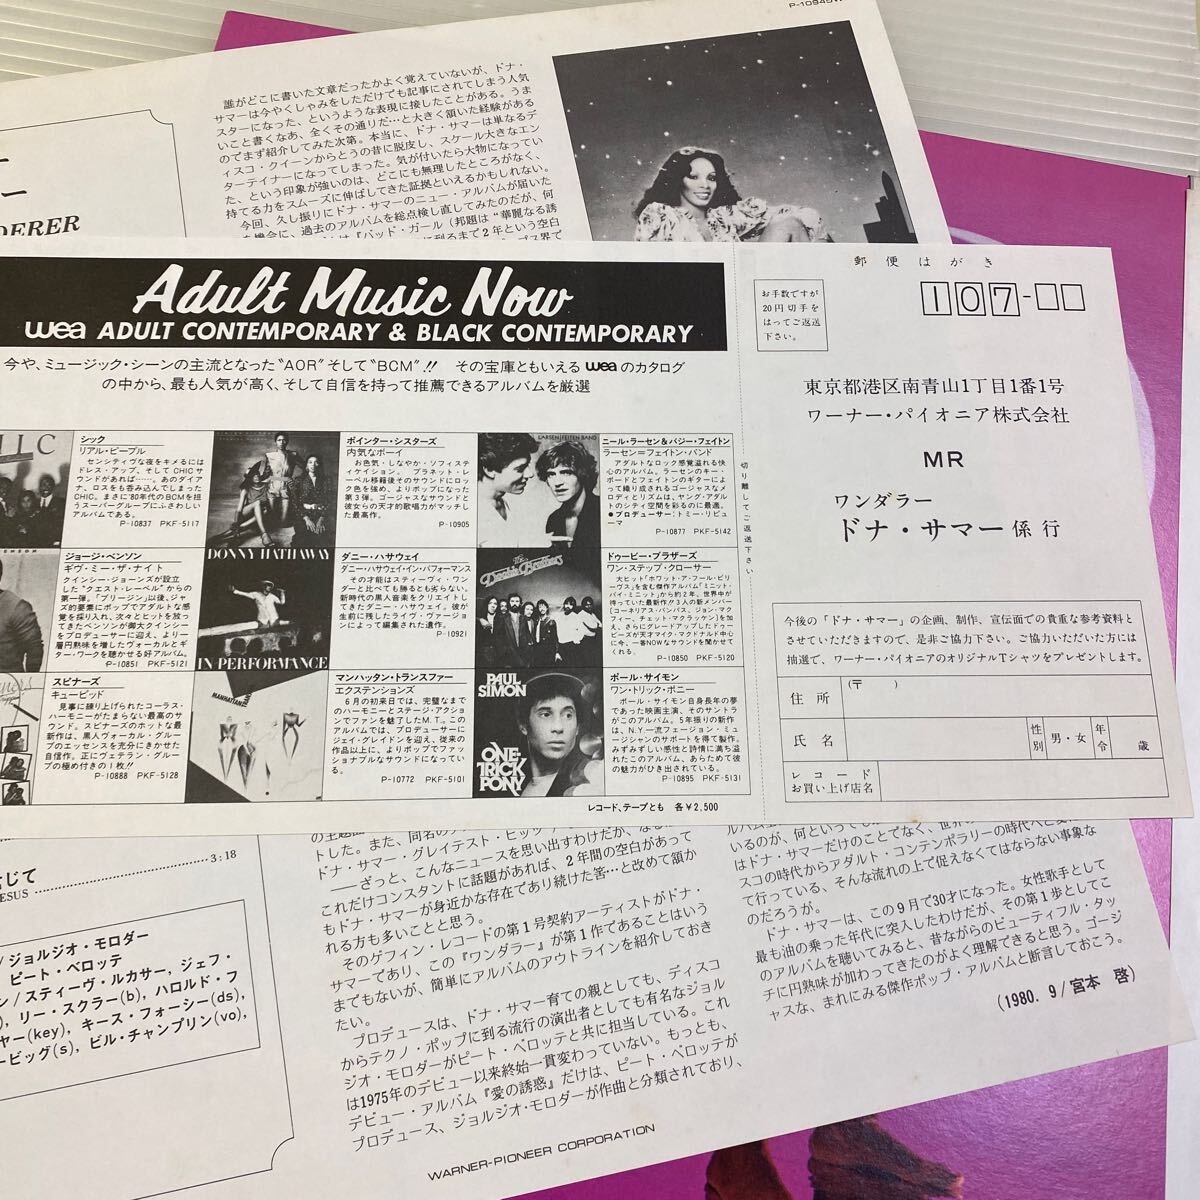 P-10945W
誰がどこに書いた文章だったかよく覚えていないが、ドナ・
サマーは今やくしゃみをしただけでも記事にされてしまう人気
スターになった、というような表現に接したことがある。うま
いこと書くなあ、全くその通りだ…と大きく頷いた経験がある
のでまず紹介してみた次第。本当に、ドナ・サマーは単なるデ
ィスコ・クイーンからとうの昔に脱皮し、スケール大きなエン
ターテイナーになってしまった。気が付いたら大物になってい
た、という印象が強いのは、どこにも無理したところがなく、
持てる力をスムーズに伸ばしてきた証拠といえるかもしれない。
今回、久し振りにドナ・サマーのニュー・アルバムが届いた
のを機会に、過去のアルバムを総点検し直してみたのだが、何
『バッド・ガール（邦題は“華麗なる誘
に到るまで2年という空白
DERER
Adult Music Now
wea ADULT CONTEMPORARY & BLACK CONTEMPORARY
今や、ミュージック・シーンの主流となった“AOR”そして“BCM”!! その宝庫ともいえるweaのカタログ
の中から、最も人気が高く、そして自信を持って推薦できるアルバムを厳選
シック
リアル・ピープル
センシティヴな夜をキメるには
ドレス・アップ、そしてCHICサ
ウンドがあれば……。あのダイア
ナ、ロスをも呑み込んでしまった
CHIC。まさに'80年代のBCMを担
うスーパーグループにふさわしい
アルバムである。
P-10837 PKF-5117
DONNY HATHAWAY
ポインター・シスターズ
内気なボーイ
お色気・しなやか・ソフィステ
イケイション。プラネット・レ
ーベル移籍後そのサウンドにロッ
ク色を強め、よりポップになった
第3弾。ゴージャスなサウンドと
彼女らの天才的歌唱力がマッチし
た最高作。
P-10905
LARSEN/FEITEN BAND
ニール・ラーセン&バジー・フェイトン
ラーセン=フェイトン・バンド
アダルトなロック感覚溢れる快
心のアルバム。ラーセンのキー・
ボードとフェイトンのギターによ
って織り成されるゴージャスなメ
ロディとリズムは、ヤング・アダル
トのシティ空間を彩るのに最適。
●プロデューサー：トミー・リピュ
ーマ
P-10877 PKF-5142
ジョージ・ベンソン
ギヴ・ミー・ザ・ナイト
クインシー・ジョーンズが設立
した“クエスト・レーベル”からの
第一弾。「ブリージン」以後、ジャ
ズ的要素にポップでアダルトな感
覚を採り入れ、次々とヒットを放っ
てきたベンソンが御大クインシー
をプロデューサーに迎え、より一
層円熟味を増したヴォーカルとギ
ター・ワークを聴かせる好アルバム。
P-10851 PKF-5121
IN PERFORMANCE
ダニー・ハサウェイ
ダニー・ハサウェイ・イン・パフォーマンス
その才能はスティーヴィ・ワン
ダーと比べても勝るとも劣らない。
新時代の黒人音楽をクリエイトし
てきたダニー・ハサウェイ。彼が
生前に残したライヴ・ヴァージョ
ンによって編集された遺作。
P-10921
The Doobie Brothers
ドゥービー・ブラザーズ
ワン・ステップ・クローサー
大ヒット「ホワット・ア・フール・ビリ
ーヴス」を含む傑作アルバム「ミニット・
バイ・ミニット」から約2年。世界中が
待っていた最新作！3人の新メンバー
（コーネリアス・バンパス、ジョン・マク
フィー、チェット・マクラッケン）を加
え、さらにグレードアップしたドゥー
ビーズが天才マイク・マクドナルド中心
に今、一番NOWなサウンドを聞かせ
てくれる。
P-10850 PKF-5120
スピナーズ
キューピッド
見事に練り上げられたコーラス・
ハーモニーがたまらない最高のサ
ウンド。スピナーズのホットな最
新作は、黒人ヴォーカル・グルー
プのエッセンスを充分にきかせた
自信作。正にヴェテラン・グルー
プの極め付きの1枚!!
P-10888 PKF-5128
マンハッタン・トランスファー
エクステンションズ
6月の初来日では、完璧なまで
のハーモニーとステージ・アクショ
ンでファンを魅了したM.T.。この
アルバムでは、プロデューサーに
ジェイ・グレイドンを迎え、従来の
作品以上に、よりポップでファッ
ショナブルなサウンドになってい
る。
P-10772 PKF-5101
PAUL
SIMON
ONE-
TRICK
PONY
ポール・サイモン
ワン・トリック・ポニー
ポール・サイモン自身長年の夢
であった映画主演、そのサントラ
がこのアルバム。5年振りの新作
は、N.Y.一流フュージョン・ミュ
ージシャンのサポートを得て製作。
みずみずしい感性と詩情に満ち溢
れたこのアルバム、あらためて彼
の魅力がひき出されている。
P-10895 PKF-5131
レコード、テープとも 各¥2,500
切り離してご返送下さい
郵便はがき
お手数ですが
20円切手を
はってご返送
下さい。
107-
東京都港区南青山1丁目1番1号
ワーナー・パイオニア株式会社
MR
ワンダラー
ドナ・サマー係 行
今後の「ドナ・サマー」の企画、制作、宣伝面での貴重な参考資料と
させていただきますので、是非ご協力下さい。ご協力いただいた方には
抽選で、ワーナー・パイオニアのオリジナルTシャツをプレゼントします。
住所 (〒 )
氏名 性別 男・女 年令 歳
レコード
お買い上げ店名
トした。また、同名の
ドナ・サマー・グレイテスト・ヒッツ
——ざっと、こんなニュースを思い出すわけだが、なる
これだけコンスタントに話題があれば、2年間の空白があって
もドナ・サマーが身近かな存在であり続けた筈…と改めて頷か
れる方も多いことと思う。
そのゲフィン・レコードの第1号契約アーティストがドナ・
サマーであり、この『ワンダラー』が第1作であることはいう
までもないが、簡単にアルバムのアウトラインを紹介しておき
たい。
プロデュースは、ドナ・サマー育ての親としても、ディスコ
からテクノ・ポップに到る流行の演出者としても有名なジョル
ジオ・モロダーがピート・ベロッテと共に担当している。これ
は1975年のデビュー以来終始一貫変わっていない。もっとも、
デビュー・アルバム『愛の誘惑』だけは、ピート・ベロッテが
プロデュース、ジョルジオ・モロダーが作曲と分類されており、
いるのが、何といっても
はドナ・サマーだけのことでなく、世界の
スコの時代からアダルト・コンテンポラリーの時代へと変
て行っている、そんな流れの上で促えなくてはならない事象な
のだろうが。
ドナ・サマーは、この9月で30才になった。女性歌手として
最も油の乗った年代に突入したわけだが、その第1歩としてこ
のアルバムを聴いてみると、昔ながらのビューティフル・タッ
チに円熟味が加わってきたのがよく理解できると思う。ゴージ
ャスな、まれにみる傑作ポップ・アルバムと断言しておこう。
(1980. 9/宮本 啓)
信じて
JESUS 3:18
/ジョルジオ・モロダー
ピート・ベロッテ
ン/スティーヴ・ルカサー, ジェフ・
), リー・スクラー(b), ハロルド・フ
ヤー(key), キース・フォーシー(ds),
ービッグ(s), ビル・チャンプリン(vo),
WARNER-PIONEER CORPORATION